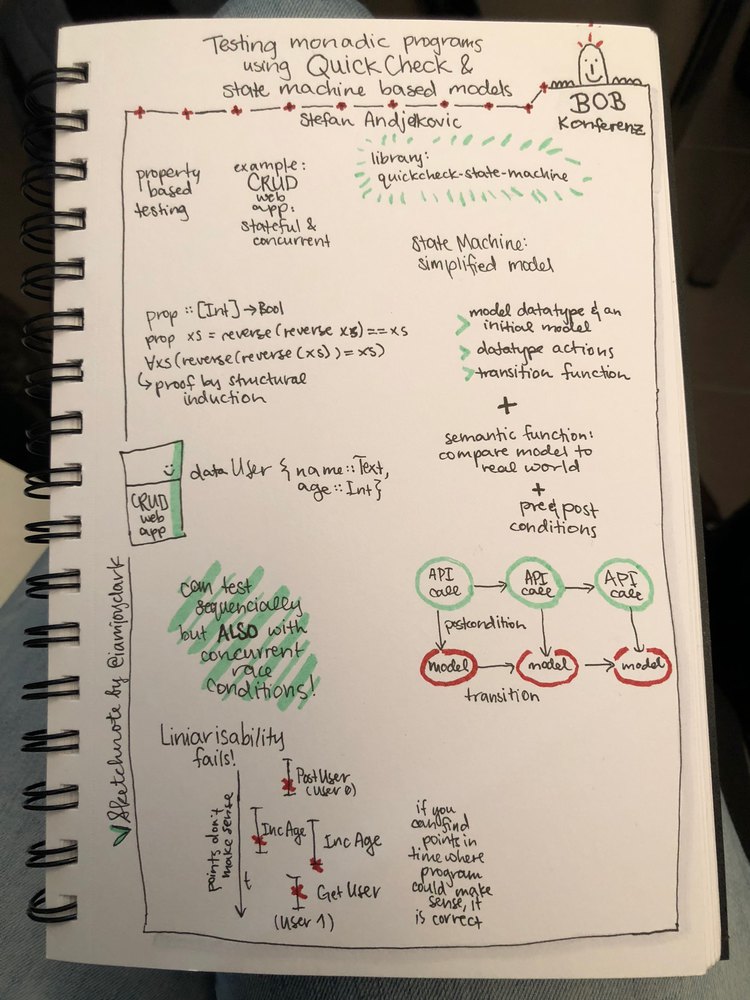 Testing monadic programs
using QuickCheck &
state machine based models
Stefan Andjelkovic
BOB
Konferenz
property
based
testing
example:
CRUD
web
app:
stateful &
concurrent
library:
quickcheck-state-machine
State Machine:
simplified model
prop :: [Int] → Bool
prop xs = reverse(reverse xs) == xs
∀xs(reverse(reverse(xs)) = xs)
↳ proof by structural
induction
> model datatype & an
initial model
> datatype actions
> transition function
+
semantic function:
compare model to
real world
+
pre & post
conditions
CRUD
web
app
data User { name :: Text,
age :: Int}
can test
sequencially
but ALSO with
concurrent
race
conditions!
API
call
API
call
API
call
postcondition
model
model
model
transition
Sketchnote by @iamjoyclark
Liniarisability
fails!
points don't
make sense
t
Post User
(User 0)
Inc Age
Inc Age
Get User
(User 1)
if you
can find
points in
time where
program
could make
sense, it
is correct